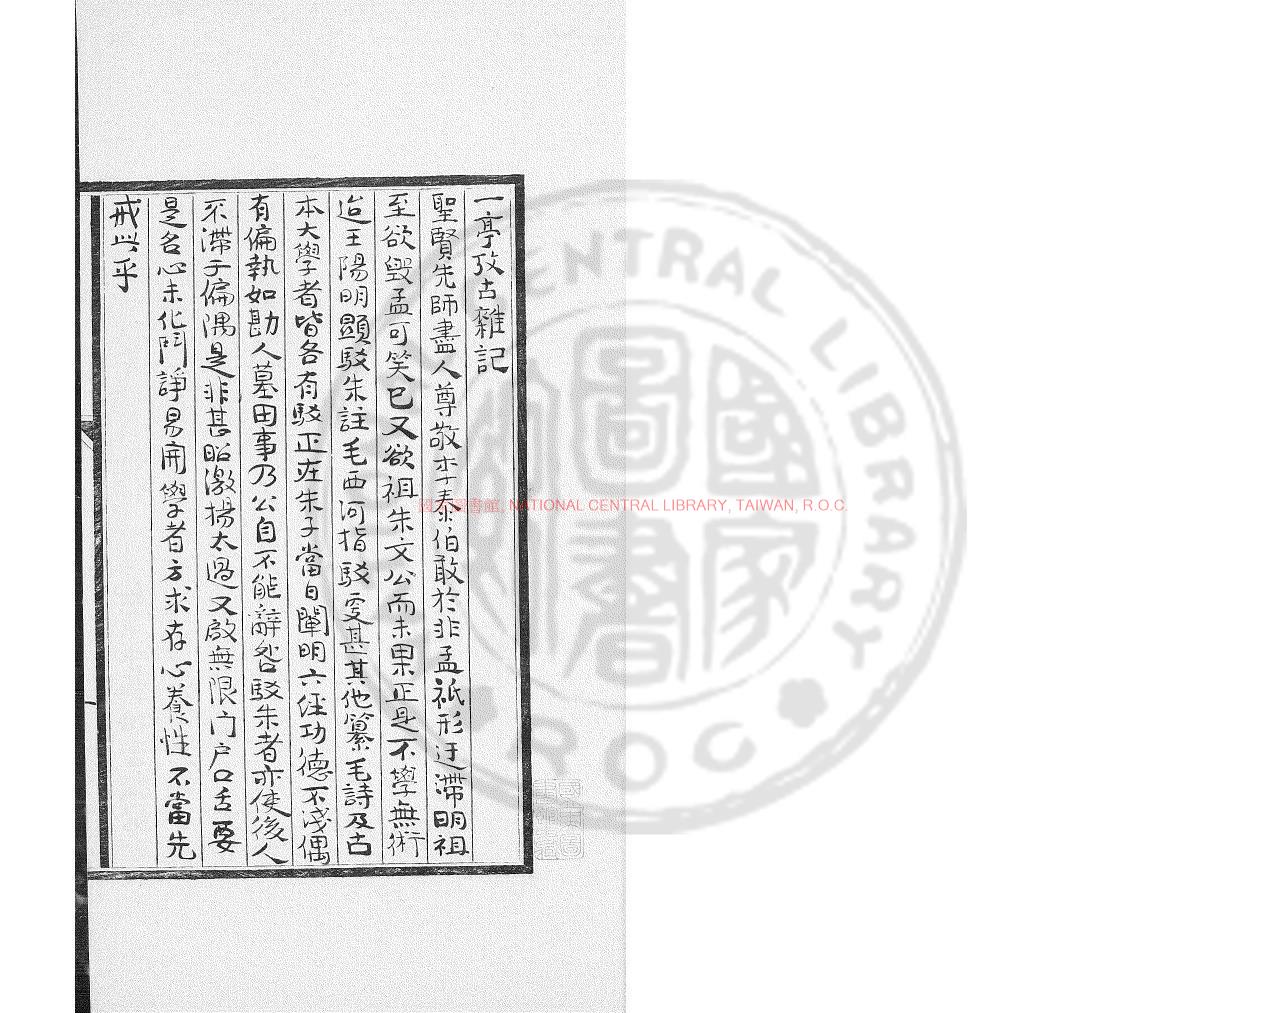 一亭攷古雜記
聖賢先師盡人尊敬李泰伯敢於非孟祇形迂滯明祖
至欲毀孟可笑已又欲祖朱文公而未果正是不學無術
迨王陽明顯駁朱註毛西河指駁更甚其他纂毛詩及古
本大學者皆各有駁正在朱子當日闡明六經功德不淺偶
有偏執如勘人墓田事乃公自不能辭咎駁朱者亦使後人
不滯于偏隅是非甚昭激揚太過又啟無限门戶口舌要
是名心未化鬥諍易開學者方求存心養性不當先
戒此乎
國家圖書館, NATIONAL CENTRAL LIBRARY, TAIWAN, R.O.C.
CENTRAL LIBRARY
ROC